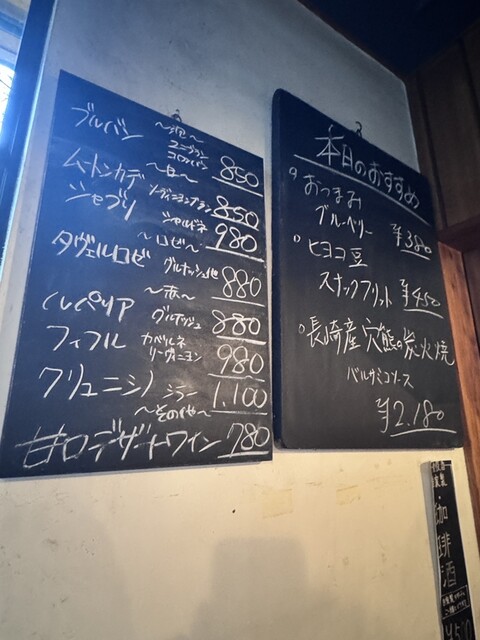 ブルバン
〜泡〜
ユニブラン
コロンバン
850
ムートンカデ
〜白〜
ソーヴィニョンブラン
850
シャブリ
シャルドネ
980
タヴェルロゼ
〜ロゼ〜
グルナッシュ他
880
〜赤〜
グルナッシュ
880
フィフル
カベルネ
980
シラー
1,100
〜その他〜
甘口デザートワイン 780
本日のおすすめ
おつまみ
ブルーベリー
¥380
ヒヨコ豆
スナックフリット
¥450
長崎産穴熊の炭火焼
バルサミコソース
¥2,180
珈琲酒